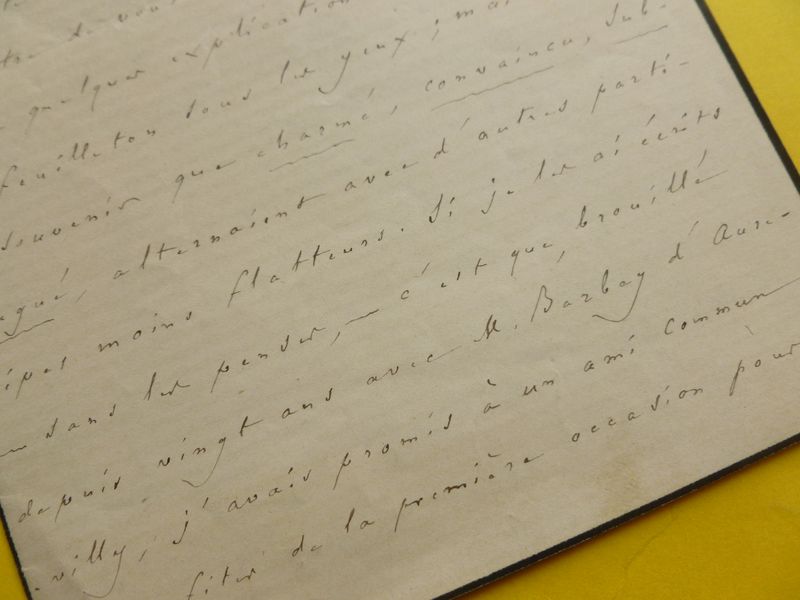 tre de vous
quelques explications
feuilleton sous les yeux ; mai
souvenir que charmé, convaincu, sub-
gué, alternaient avec d'autres parti-
cipes moins flatteurs. Si je les ai écrits
— sans les penser, — c'est que, brouillé
depuis vingt ans avec M. Barbey d'Aure-
-villy, j'avais promis à un ami commun
fiter de la première occasion pour